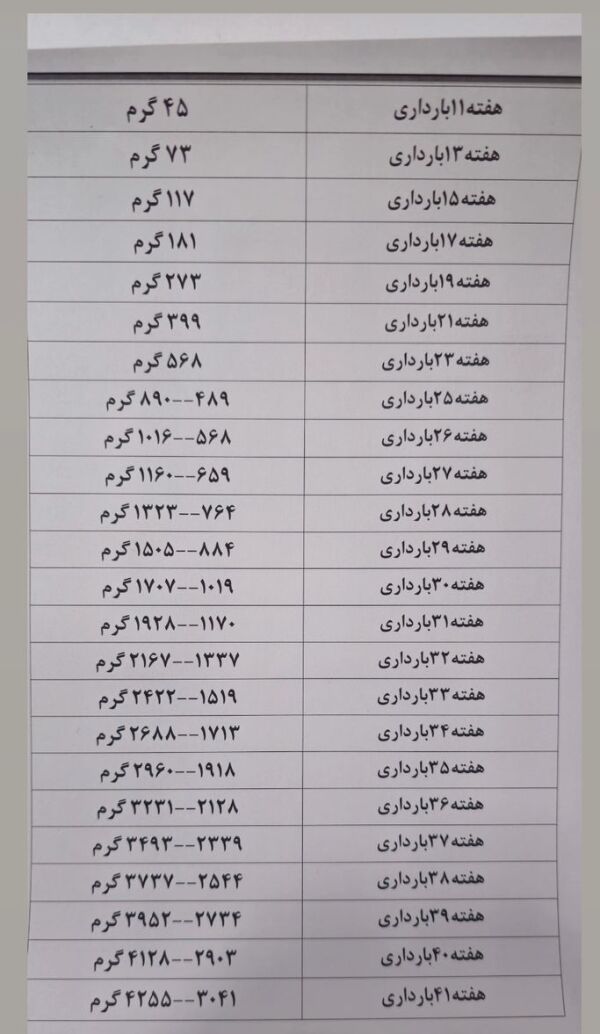 هفته۱۱بارداری ۴۵ گرم
هفته۱۳بارداری ۷۳ گرم
هفته۱۵بارداری ۱۱۷ گرم
هفته۱۷بارداری ۱۸۱ گرم
هفته۱۹بارداری ۲۷۳ گرم
هفته۲۱بارداری ۳۹۹ گرم
هفته۲۳بارداری ۵۶۸ گرم
هفته۲۵بارداری ۴۸۹--۸۹۰ گرم
هفته۲۶بارداری ۵۶۸--۱۰۱۶ گرم
هفته۲۷بارداری ۶۵۹--۱۱۶۰ گرم
هفته۲۸بارداری ۷۶۴--۱۳۲۳ گرم
هفته۲۹بارداری ۸۸۴--۱۵۰۵ گرم
هفته۳۰بارداری ۱۰۱۹--۱۷۰۷ گرم
هفته۳۱بارداری ۱۱۷۰--۱۹۲۸ گرم
هفته۳۲بارداری ۱۳۳۷--۲۱۶۷ گرم
هفته۳۳بارداری ۱۵۱۹--۲۴۲۲ گرم
هفته۳۴بارداری ۱۷۱۳--۲۶۸۸ گرم
هفته۳۵بارداری ۱۹۱۸--۲۹۶۰ گرم
هفته۳۶بارداری ۲۱۲۸--۳۲۳۱ گرم
هفته۳۷بارداری ۲۳۳۹--۳۴۹۳ گرم
هفته۳۸بارداری ۲۵۴۴--۳۷۳۷ گرم
هفته۳۹بارداری ۲۷۳۴--۳۹۵۲ گرم
هفته۴۰بارداری ۲۹۰۳--۴۱۲۸ گرم
هفته۴۱بارداری ۳۰۴۱--۴۲۵۵ گرم